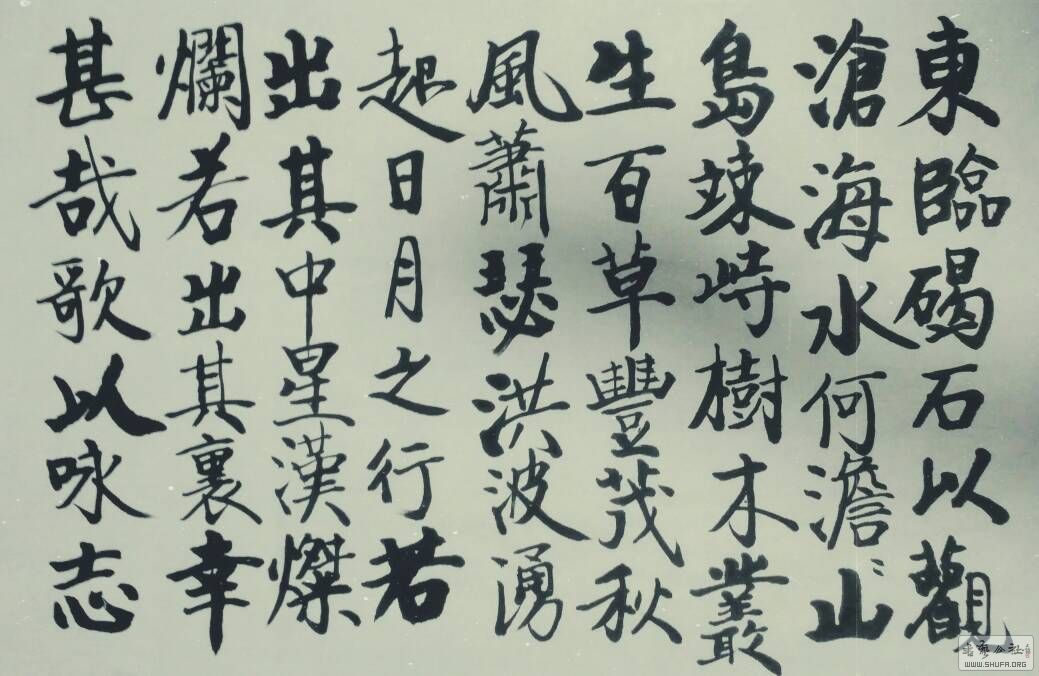 東臨碣石以觀
滄海水何澹〻山
島竦峙樹木叢
生百草豐茂秋
風蕭瑟洪波湧
起日月之行若
出其中星漢燦
爛若出其裏幸
甚哉歌以咏志
書藝公社
WWW.SHUFA.ORG